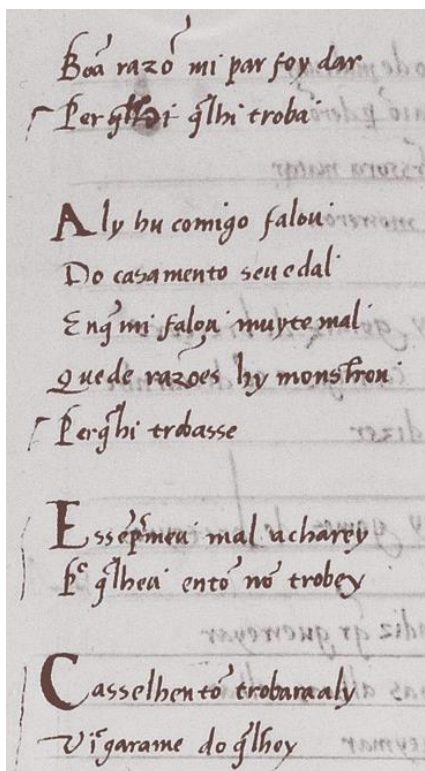 Boã razõ mi par foy dar
Per q̃lhi q̃lhi trobai
Aly hu comigo falou
Do casamento seu edal
Enq̃ mi falou muyte mal
Quede razões hy monstrou
Perq̃lhi trobasse
E ssep̃meu mal acharey
Pᵉ q̃lheu entõ nõ trobey
C asselhentõ trobaraaly
Vĩgarame do q̃lhoy